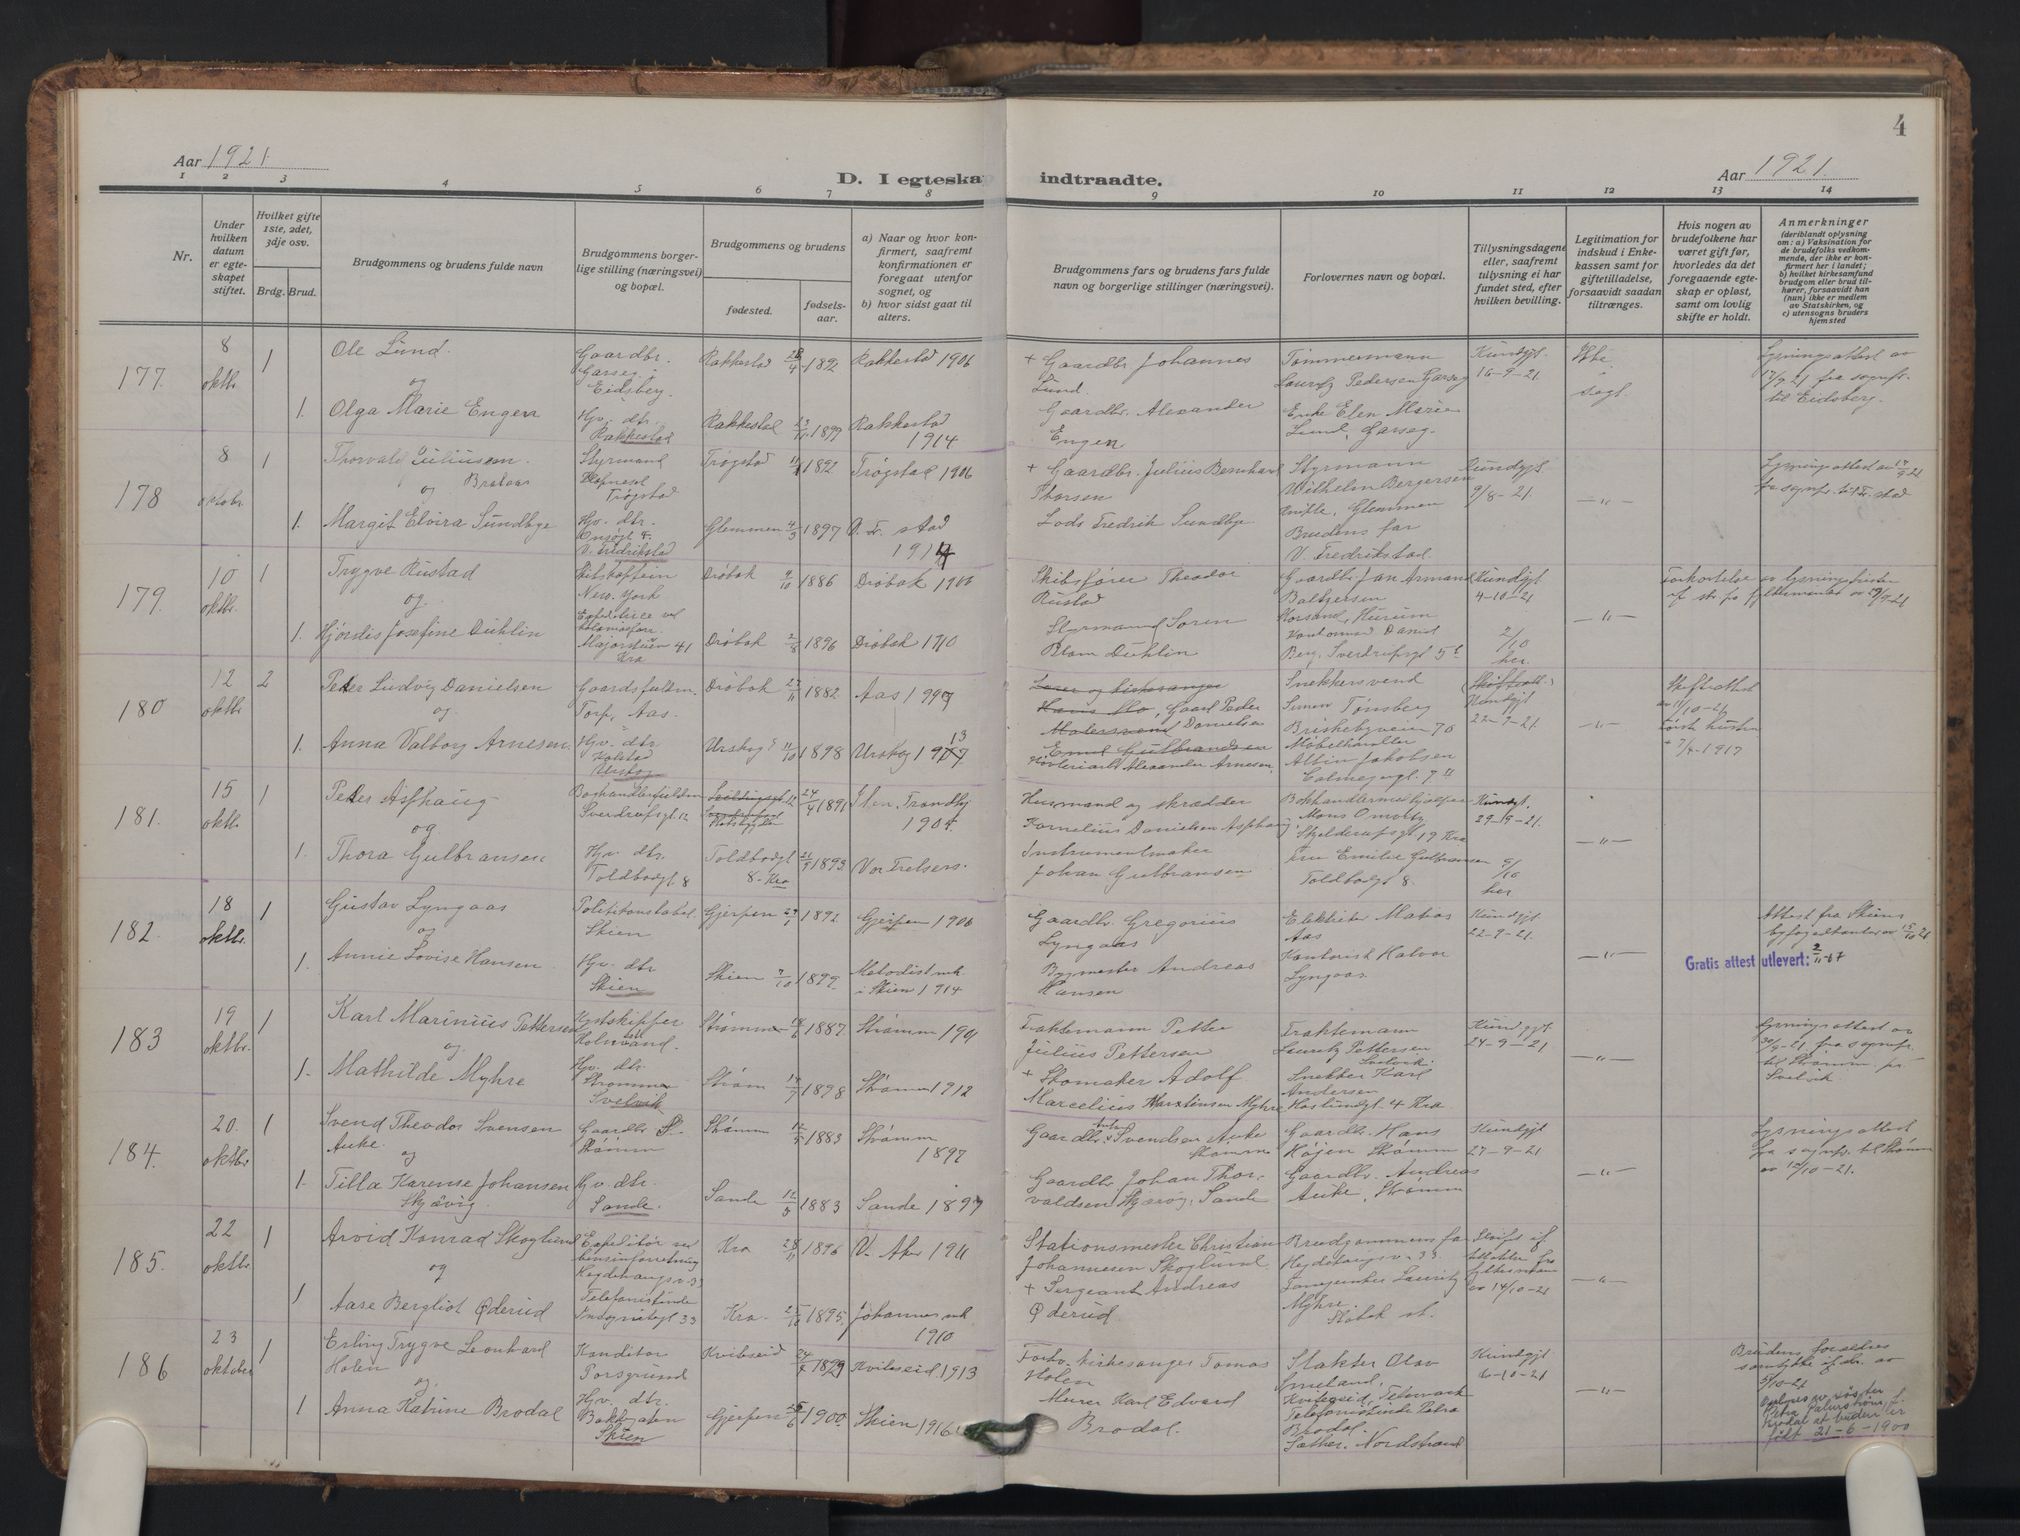 4
Aar 1921.
D. I egteska
indtraadte.
Aar 1921.
1 2 3 4 5 6 7 8 9 10 11 12 13 14
Nr.
Under hvilken datum er egteskapet stiftet.
Hvilket gifte 1ste, 2det, 3dje osv.
Brdg. Brud.
Brudgommens og brudens fulde navn
Brudgommens borgerlige stilling (næringsvei) og bopæl.
Brudgommens og brudens
fødested.
fødselsaar.
a) Naar og hvor konfirmert, saafremt konfirmationen er foregaat utenfor sognet, og
b) hvor sidst gaat til alters.
Brudgommens fars og brudens fars fulde navn og borgerlige stillinger (næringsvei).
Forlovernes navn og bopæl.
Tillysningsdagene eller, saafremt tillysning ei har fundet sted, efter hvilken bevilling.
Legitimation for indskud i Enkekassen samt for giftetilladelse, forsaavidt saadan tiltrænges.
Hvis nogen av brudefolkene har været gift før, hvorledes da det foregaaende egteskap er opløst, samt om lovlig skifte er holdt.
Anmerkninger
(deriblandt oplysning om: a) Vaksination for de brudefolks vedkommende, der ikke er konfirmert her i landet; b) hvilket kirkesamfund brudgom eller brud tilhører, forsaavidt han (hun) ikke er medlem av Statskirken, og c) utensogns bruders hjemsted
177. 8 oktbr. 1 Ole Lund. Gaardbr. Garseg i Eidsberg. Rakkestad 28/4 1892 Rakkestad 1906 + Gaardbr. Johannes Lund. Tømmermann Lauritz Pedersen Garseg Kundgjt. 16-9-21. Ikke sagt. Lysningsattest av 17/9 21 fra sognepr. til Eidsberg.
og
1. Olga Marie Engen Hv. dtr. Rakkestad Rakkestad 1899 Rakkestad 1914 Gaardbr. Alexander Engen Enke Elen Marie Lund, Garseg.
178 8 oktobr. 1 Thorvald Juliussen Braloos Styrmand Trøgstad Trøgstad 1892 Trøgstad 1906 + Gaardbr. Julius Bernhard Thorsen Styrmann Wilhelm Bergersen Glemmen Kundgjt 9/8-21. —"—
og
1. Margit Elvira Sundbye Hv. dtr. V. Fredrikstad Glemmen 4/3 1897 V. Fr. stad 1914 Lods Fredrik Sundbye Brudens far V. Fredrikstad.
179. 10 oktbr. 1 Trygve Rustad Skibskaptein New-York Drøbak 4/10 1886 Drøbak 1906 Skibsfører Theodor Rustad Gaardbr. Jan Armand Baltzersen Hurum Kundgjt 4-10-21 —"— Forkortelse av lysningsfristen
og
1. Hjørdis Josefine Duhlin Majorstuen 41 Kra Drøbak 2/8 1896 Drøbak 1910 Styrmand Soren Blom Duhlin Kontormd Daniel Berg, Sverdrupsgt 5 2/10 her.
180 12 oktbr. 2 Peder Ludvig Danielsen Gaardsfuldm. Torp, Aas. Drøbak 27/11 1882 Aas 1 Gaard Peder Danielsen Snekkersvend Simon Tønsberg Briskebyveien 70 Kundgjt 22-9-21. —"— Skifteattest av 11/10-21 første hustru + 7/4-1917
og
1. Anna Valborg Arnesen. Hv. dtr Urskog Urskog 11/10 1898 Urskog 1913 Alexander Arnesen. Møbelhandler Albin Jakobsen Colmejergt. 7
181. 15 oktbr. 1 Peder Asphaug Boghandlerfuldm Sverdrupsgt. 12 24/4 1891 Ilen, Trondhj 190 Husmand og skrædder Kornelius Danielsen Asphaug Mons Omoltz Skjelderupsgt 19 Kra Kundgt. 29-9-21. —"—
og
1. Thora Gulbransen Hv. dtr. Toldbodgt 8 Toldbodgt 8. Kra 21/9 1893 Vor Frelsers. Instrumentmaker Johan Gulbransen Fru Emilie Gulbransen Toldbodgt 8. 9/10 her
182. 18 oktbr. 1 Gustav Lyngaas Politikonstabel. Skien Gjerpen 29/7 1892. Gjerpen 1906 Gaardbr. Gregorius Lyngaas Elektriker Matias Aas Kundgjt 22-9-21. —"— Attest fra Skiens byfogedkontor av 15/10 21
og
1. Annie Lovise Hansen Hv. dtr Skien Skien 7/10 1899. Metodist mk i Skien 1914 Bygmester Andreas Hansen Kontorist Halvor Lyngaas Gratis attest utlevert: 2/11-67
183 19 oktbr. 1 Karl Marinius Pettersen Kystskipper Holmestrand. Strømm 18/6 1887 Strømm 190 Fraktemann Petter Julius Pettersen Fraktemann Lauritz Pettersen Svelvik. Kundgjt 24-9-21 —"— Lysningsattest av 30/9-21 fra sognepr. til Strømm pr. Svelvik
og
1. Mathilde Myhre Hv. dtr. Strømm Svelvik Strøm 17/7 1898 Strømm 1912 + Skomaker Adolf Marcelius Martinsen Myhre Snekker Karl Andersen Haslundgt. 4 Kra
184. 20. oktbr 1 Svend Theodor Svensen Auke Gaardbr. Strømm Strømm 12/5 1883 Strømm 1897 Gaardbr. Svendsen Auke Strømm Gaardbr. Hans Højen Strømm Kundgjt 27-9-21 —"— Lysningsattest fra sognepr. til Strømm av 12/10-21.
og
1. Tilla Karense Johansen Skjævig Hv. dtr. Sande. Sande 1883 Sande 1897 Gaardbr. Johan Thorvaldsen Skjævig, Sande Gaardbr. Andreas Auke, Strømm
185. 22 oktbr. 1 Arvid Konrad Skoglund Expeditør ved bensinforretning Hegdehaugsv. 33 Kra 28/11 1896 V. Aker 1911 Stationsmester Christian Johannesen Skoglund. Brudgommens far Hegdehaugsv. 33. av 14/10-21 —"—
og
1 Aase Bergliot Øderud Telefonistinde Kra. 25/10 1895. Johannes mk 1910 + Sergeant Andreas Øderud. Lauritz Myhre
186 23 oktober 1 Erling Trygve Leonhard Holen Konditor Porsgrund Kviteseid 24/7 1899 Kviteseid 1913 Forhv. kirkesanger Tomas Holen Slakter Olav Smeland, Kviteseid, Telemark Kundgjt 6-10-21 —"— Brudens forældres samtykke av 5/10-21
og
1 Anna Katrine Brodal Hv. dtr. Bakkegaten Skien Gjerpen 1900 Skien 1916 Murer Karl Edvard Brodal. Telefonistinde Petra Brodal. Sæther, Nordstrand Opl. av søster Petra Brodal at bruden er født 21-6-1900